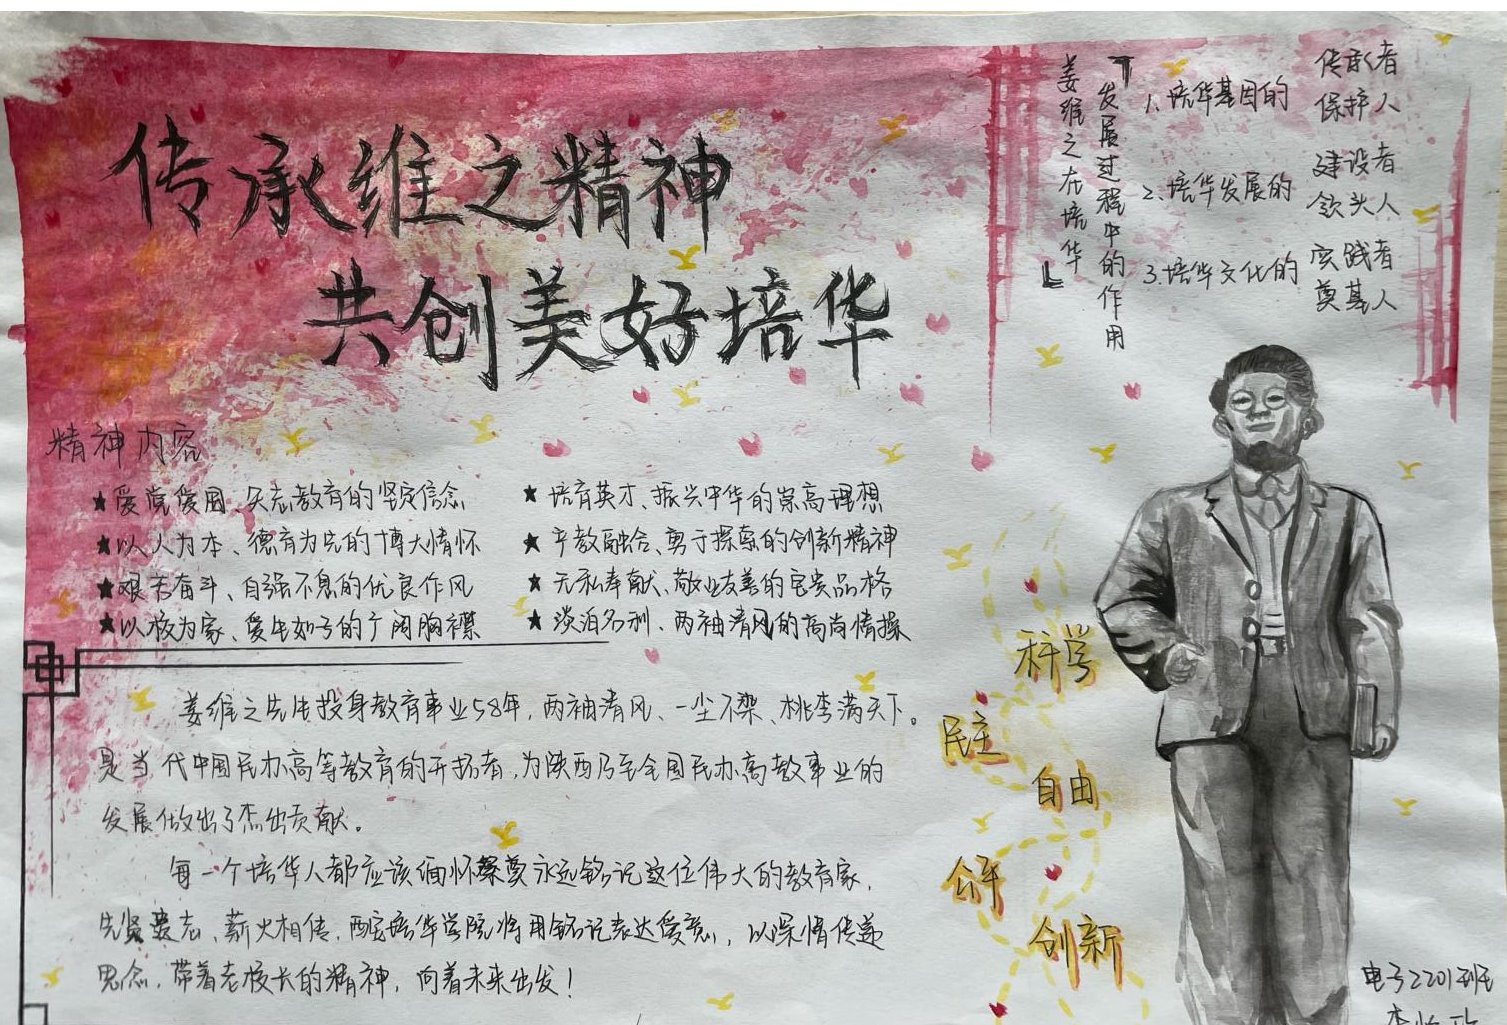 传承维之精神
共创美好培华
『姜维之在培华
发展过程中的作用』
1.培华基因的 传承者 保护人
2.培华发展的 建设者 领头人
3.培华文化的 实践者 奠基人
精神内容
★爱党爱国、矢志教育的坚定信念
★以人为本、德育为先的博大情怀
★艰苦奋斗、自强不息的优良作风
★以校为家、爱生如子的广阔胸襟
★培育英才、振兴中华的崇高理想
★产教融合、勇于探索的创新精神
★无私奉献、敬业友善的宝贵品格
★淡泊名利、两袖清风的高尚情操
姜维之先生投身教育事业58年，两袖清风、一尘不染、桃李满天下。
是当代中国民办高等教育的开拓者，为陕西乃至全国民办高教事业的
发展做出了杰出贡献。
每一个培华人都应该缅怀祭奠永远铭记这位伟大的教育家，
先贤遗志、薪火相传，西安培华学院将用铭记表达爱意，以深情传递
思念，带着老校长的精神，向着未来出发！
科学
民主
自由
合作
创新
电子2201班
李